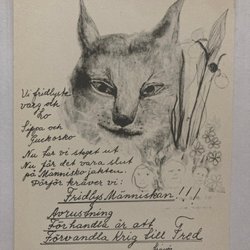 Vi fridlyste
varg och
lo
Sippa och
Guckosko
Nu har vi stiget ut
Nu får det vara slut
på Människojakten.
Därför kräver vi:
Fridlys Människan!!!
Avrustning
Förhandla är att
Förvandla krig till Fred